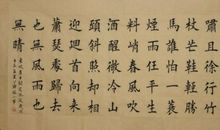 嘯且徐行竹
杖芒鞋輕勝
馬誰怕一蓑
煙雨任平生
料峭春風吹
酒醒微冷山
頭斜照却相
迎回首向來
蕭瑟處歸去
也無風雨也
無晴